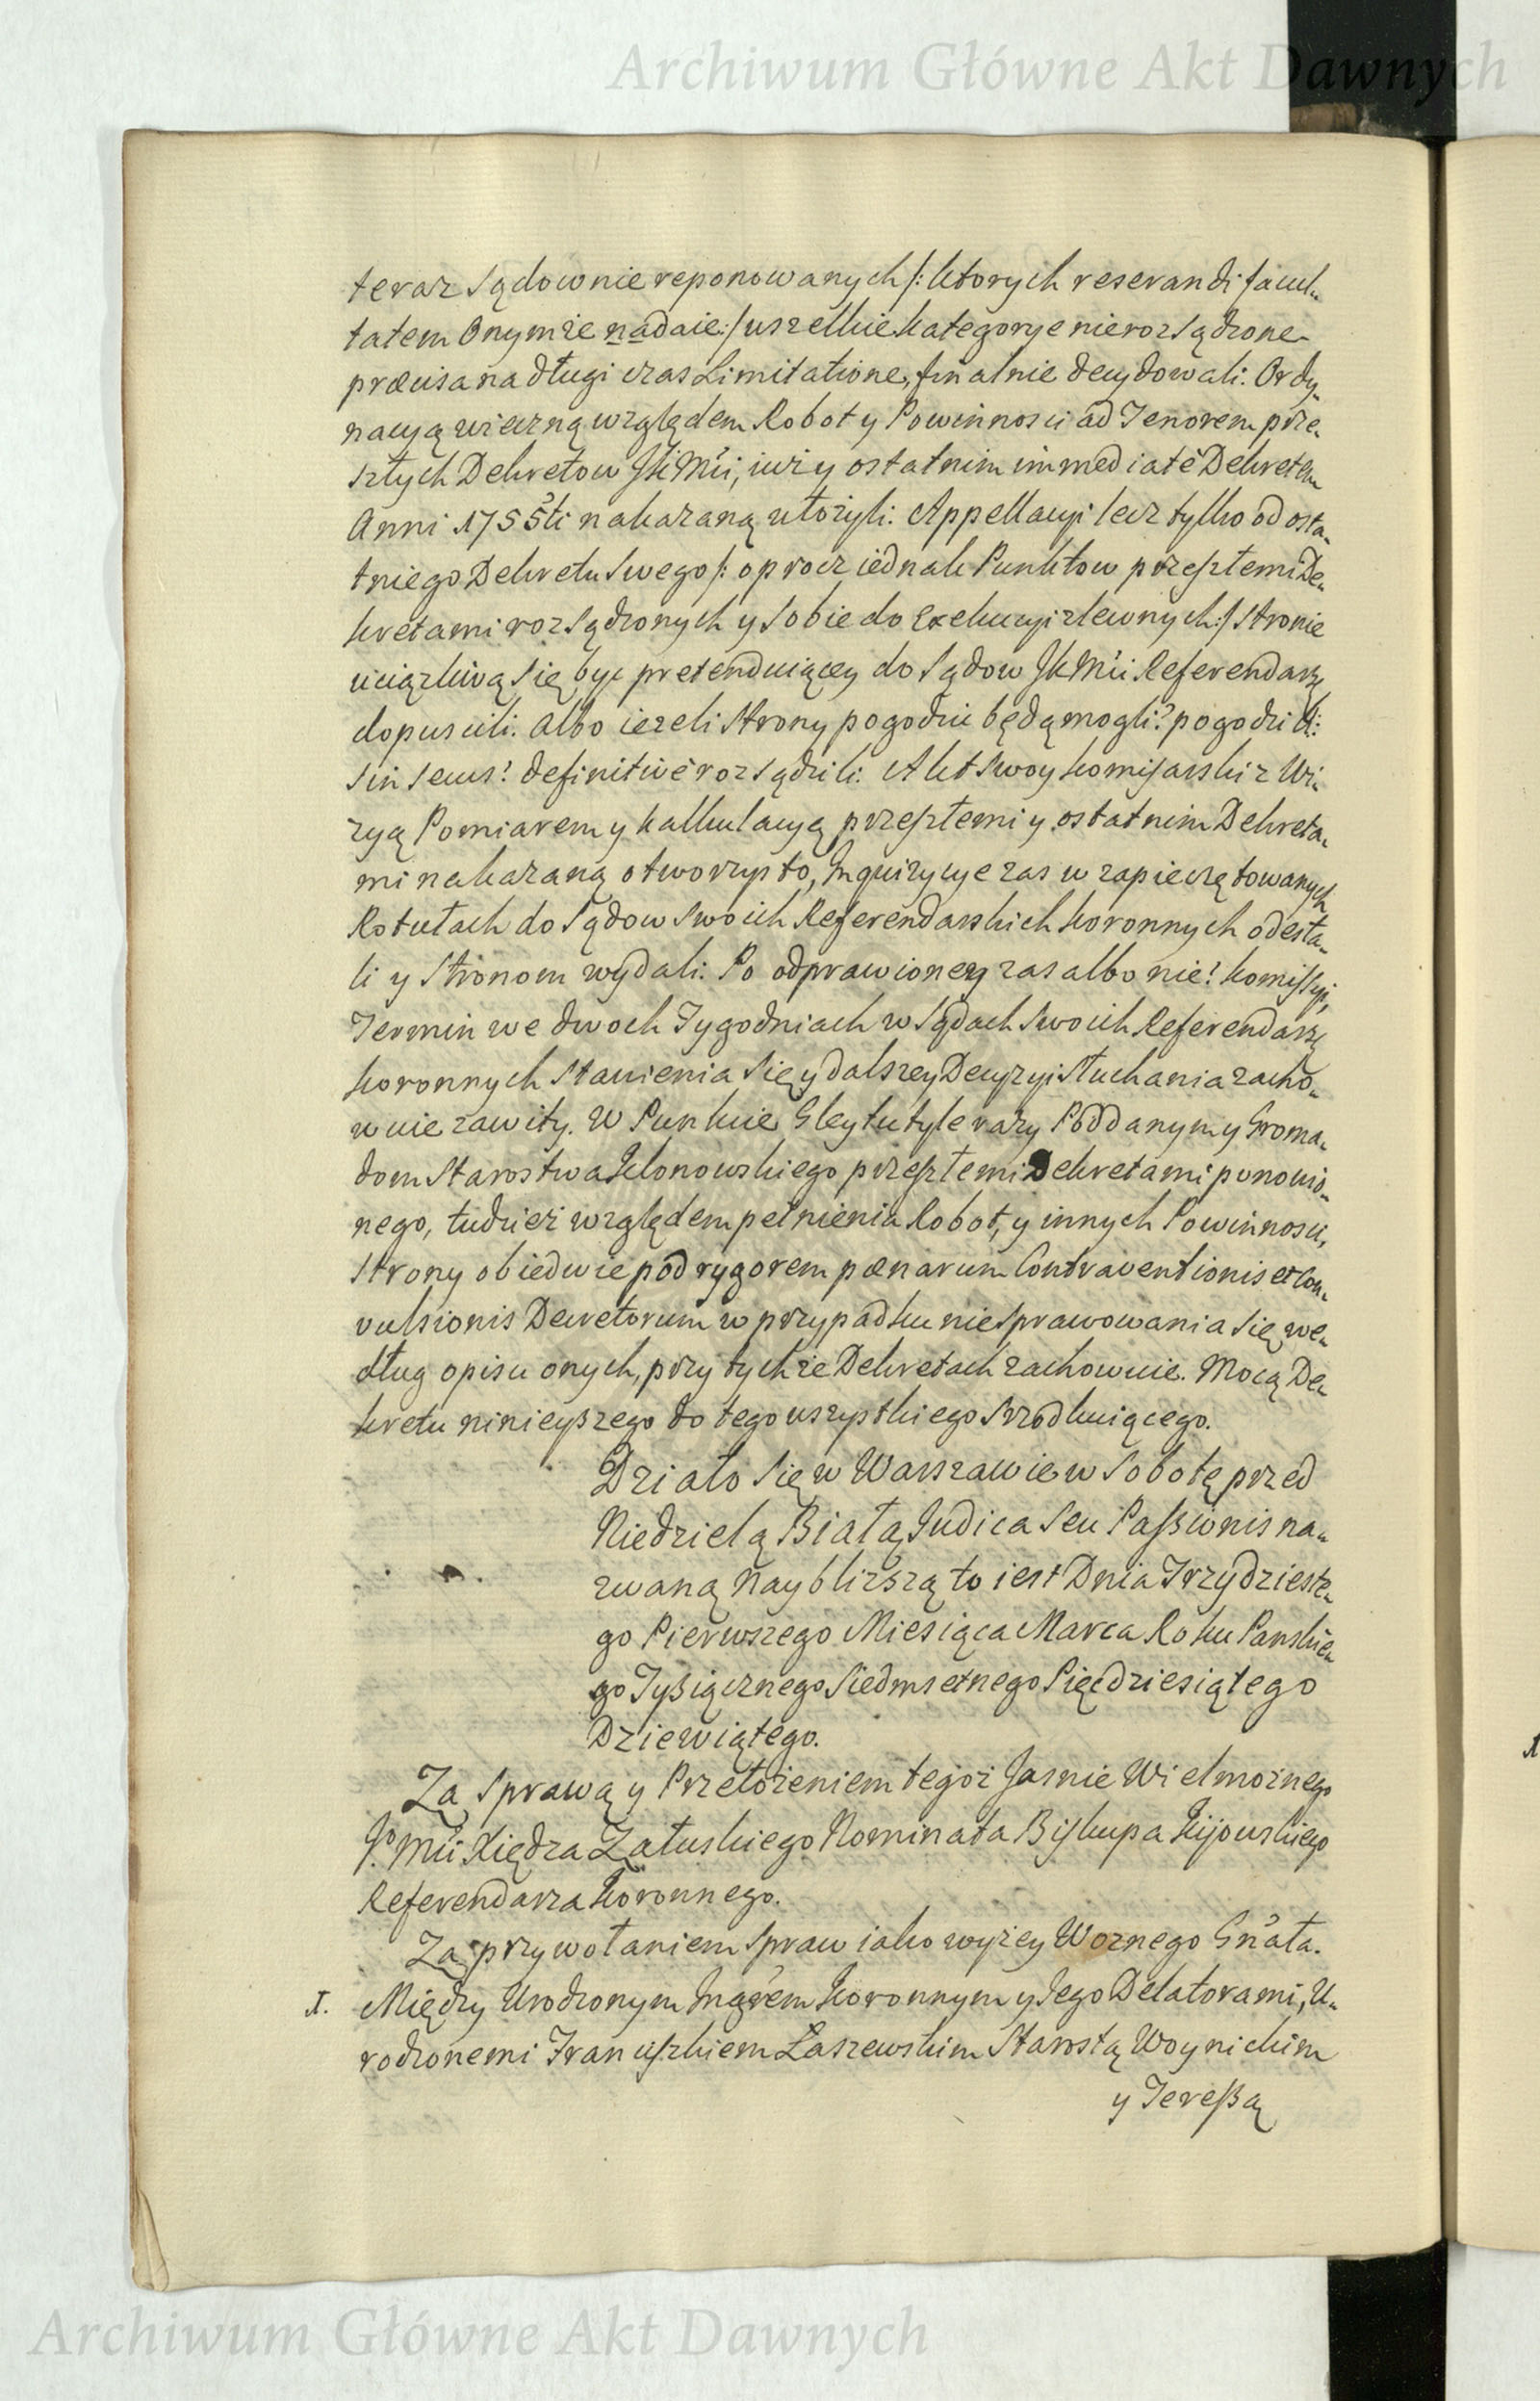 Archiwum Główne Akt Dawnych
teraz sądownie reponowanych /: ktorych reserandi facul-
tatem Onymże nadaie :/ wszelkie kategorye nierozsądzone
præcisa na długi czas Limitatione, finalnie decydowali. Ordy-
nacyą wieczną względem Robot y Powinnosci ad Tenorem prze-
szłych Dekretow JKMci, iuż y ostatnim immediatè Dekretem
Anni 1755ti nakazaną ułożyli. Appellacyi lecz tylko od osta-
tniego Dekretu swego /: oprocz iednak Punktow przeszłemi De-
kretami rozsądzonych y sobie do Exekucyi zlewnych :/ stronie
uciążliwą się być pretenduiącey do Sądow JKMci Referendarz
dopuscili. Albo ieżeli strony pogodzic będą mogli? pogodzili:
sin secus? definitivè rozsądzili. Akt swoy komisarski z Wi-
zyą Pomiarem y kalkulacyą przeszłemi y ostatnim Dekreta-
mi nakazaną otworzysto, Inquizycye zas w zapieczętowanych
Rotułach do Sądow swoich Referendarskich koronnych odesła-
li y stronom wydali. Po odprawioney zas albo nie? komissyi,
Termin we dwoch Tygodniach w Sądach swoich Referendarz
koronnych stawienia się y dalszey Decyzyi słuchania zacho-
wuie zawity. W Punkcie Gleytu tyle razy Poddanym y Groma-
dom Starostwa Klonowskiego przeszłemi Dekretami ponowio-
nego, tudzież względem pełnienia Robot, y innych Powinnosci,
strony obiedwie pod rygorem pœnarum Contraventionis et Con-
vulsionis Decretorum w przypadku niesprawowania się we-
dług opisu onych, przy tychże Dekretach zachowuie. Mocą De-
kretu ninieyszego do tego wszystkiego szrodkuiącego.
Działo się w Warszawie w Sobotę przed
Niedzielą Białą Judica seu Passionis na-
zwaną naybliższą to iest Dnia Trzydzieste-
go Pierwszego Miesiąca Marca Roku Panskie-
go Tysiącznego Siedmsetnego Pięcdziesiątego
Dziewiątego.
Za Sprawą y Przełożeniem tegoż Jasnie Wielmożnego
Jo. Mci Xiędza Załuskiego Nominata Biskupa Kijowskiego
Referendarza koronnego.
Za przywołaniem spraw iako wyżey Woznego Gnała.
1. Między Urodzonym Ingrem koronnym y Jego Delatorami, U-
rodzonemi Franciszkiem Łaszewskim Starostą Woynickim
y Teressą
Archiwum Główne Akt Dawnych